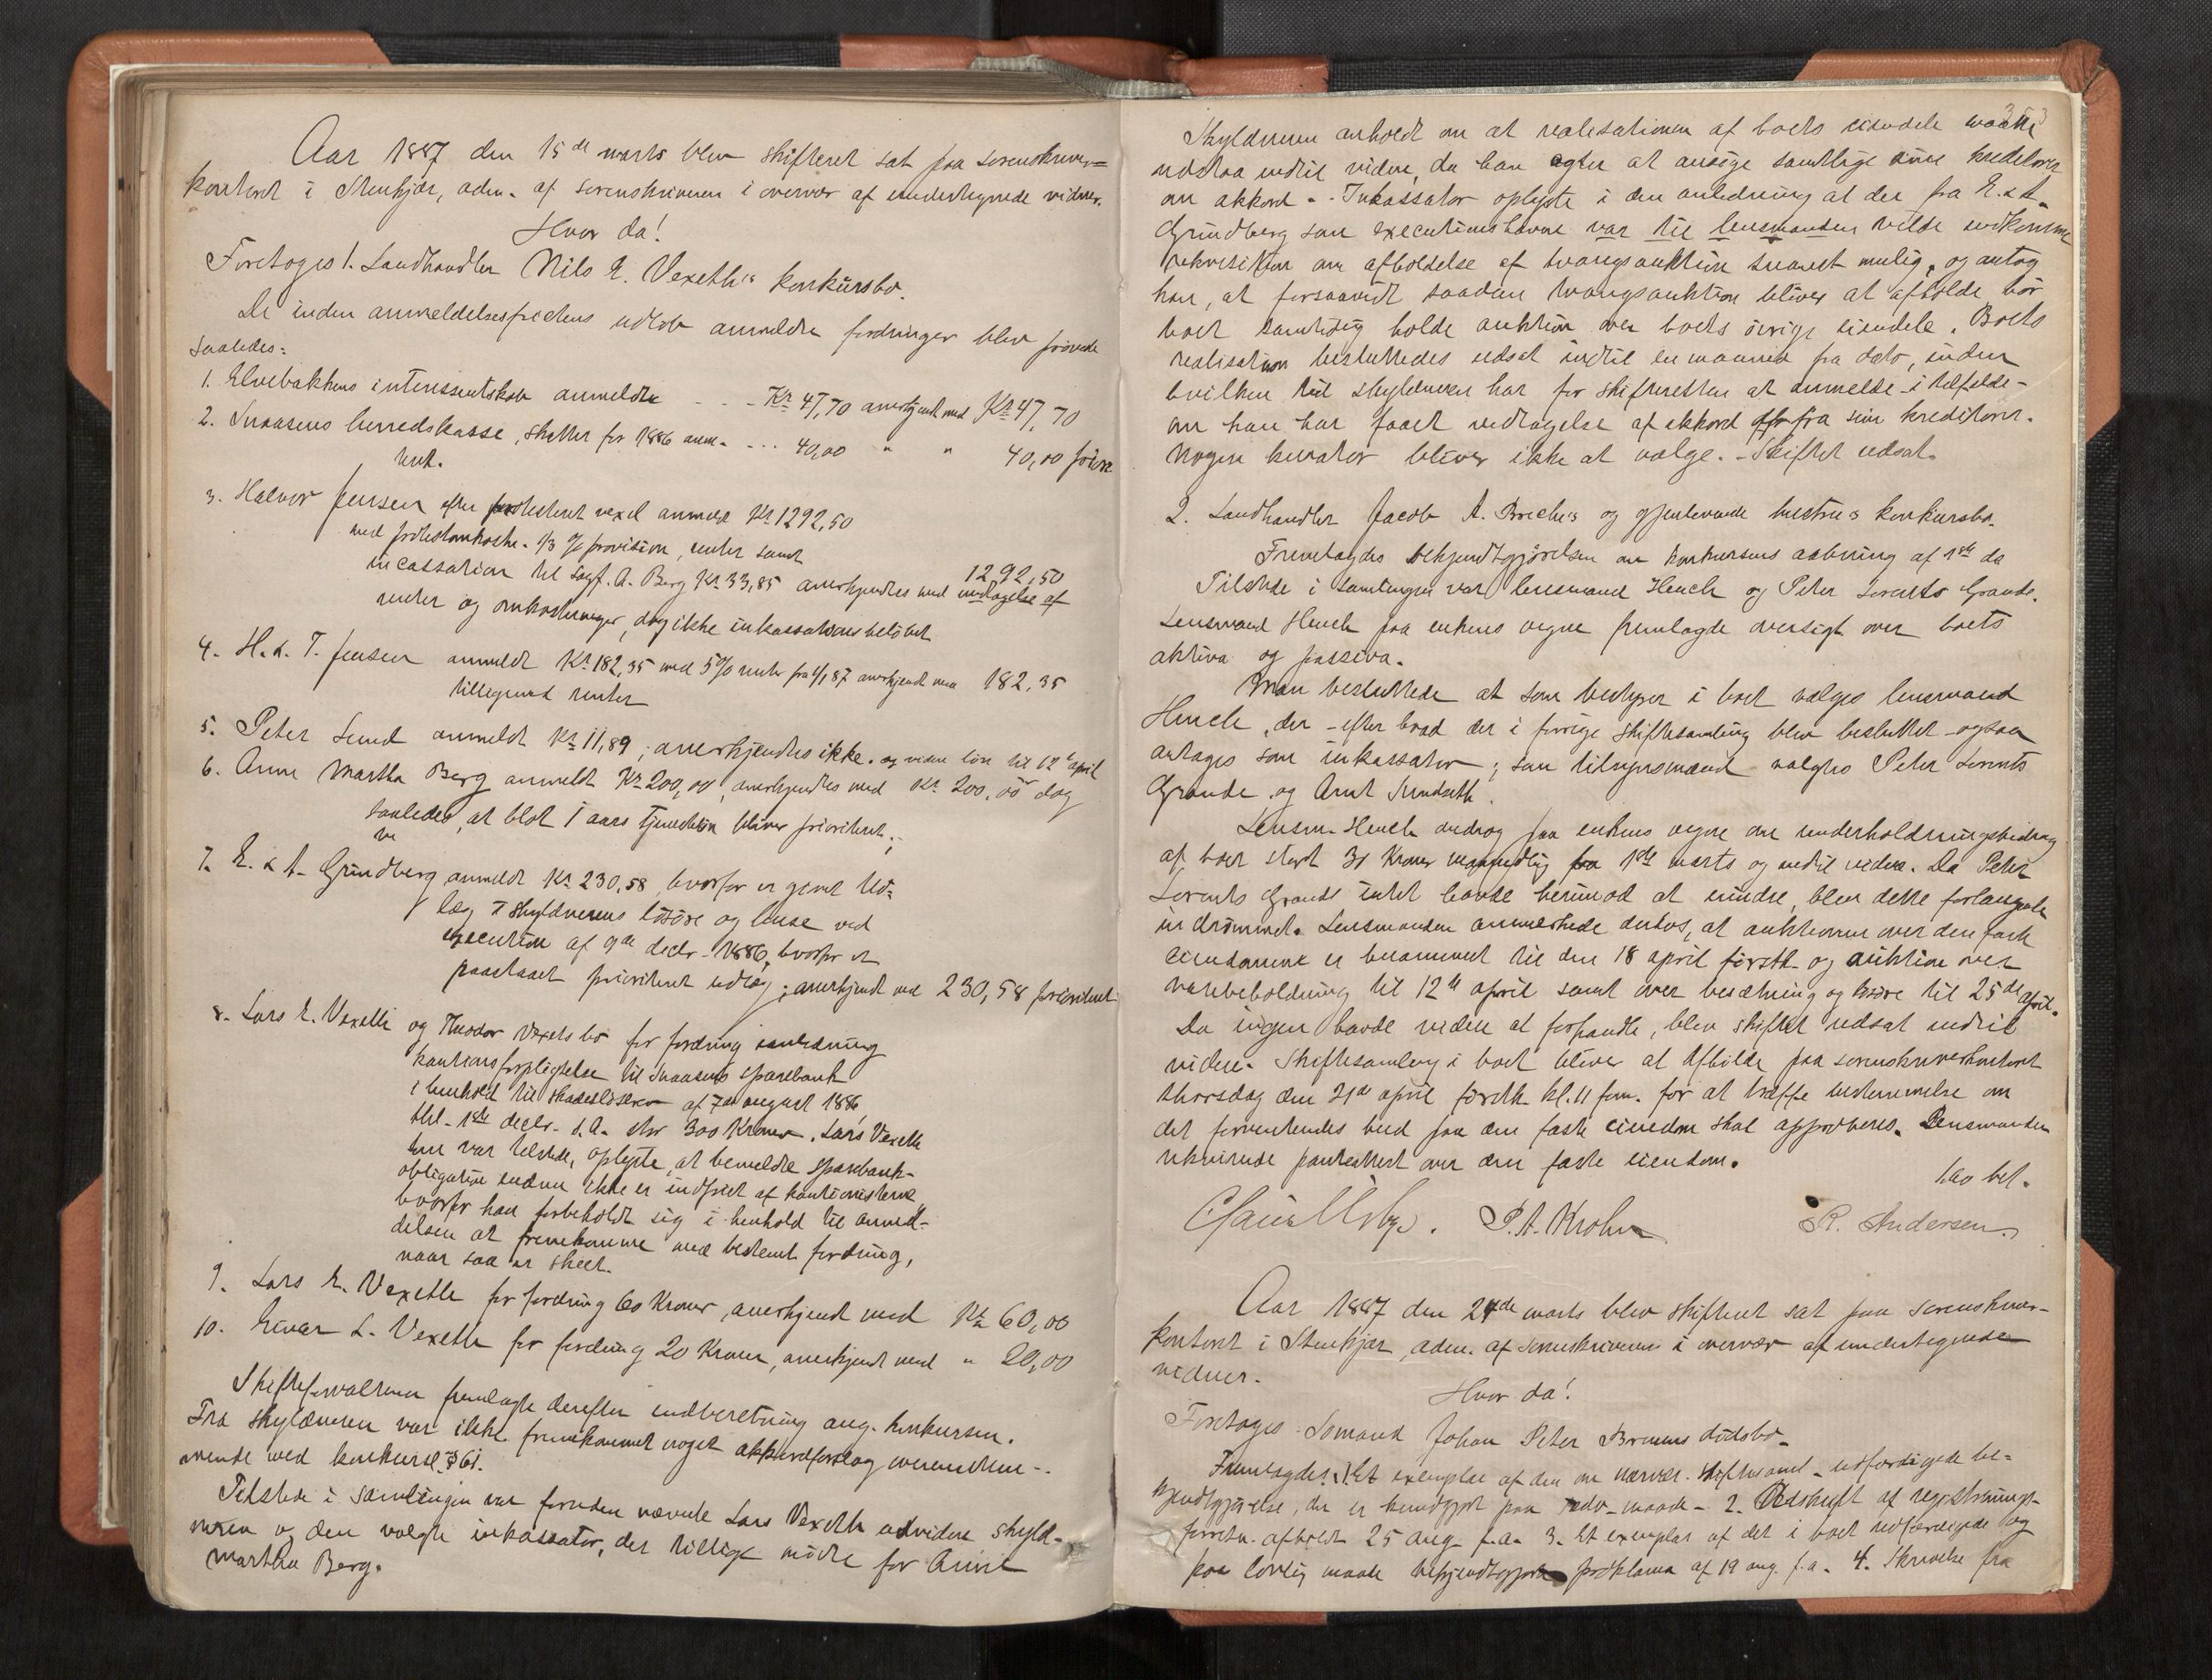 Aar 1887 den 15de marts blev skifteret sat paa sorenskriver=
kontoret i Stenkjær, adm. af sorenskriveren i overvær af undertegnede vidner.
Hvor da!
Foretoges 1. Landhandler Nils E. Vexeths konkursbo.
De inden anmeldelsesfristens udløb anmeldte fordringer blev prøvede
saaledes:
1. Elvebakkens interessentskab anmeldte - - - Kr 47,70 anerkjendt med Kr 47,70
2. Snaasens herredskasse, skatter for 1886 anm. - ... 40,00 " " 40,00 priori
tert.
3. Halvor Jensen efter protesteret vexel anmeldt Kr 1292,50
med protestomkostn. 1/3 % provision, renter samt
incassation til sagf. A. Berg Kr. 33,85 anerkjendtes med 1292,50
renter og omkostninger, dog ikke inkassationsbeløbet
4. H. & T. Jensen anmeldt Kr 182,35 med 5% renter fra 1/1 87 anerkjendt med 182,35
tilligemed renter
5. Peter Lund anmeldt Kr 11,89; anerkjendtes ikke. og videre løn til 12te april
6. Anne Martha Berg anmeldt Kr 200,00, anerkjendtes med Kr. 200,00 dog
saaledes, at blot 1 aars tjenesteløn bliver prioriteret.
7. E. & A. Grindberg anmeldt Kr. 230,58, hvorfor er gjort Ud=
læg i skyldnerens løsøre og huse ved
execution af 9de decbr. 1886, hvorfor er
paastaaet prioriteret udlæg; anerkjendt med 230,58 prioriteret.
8. Lars E. Vexeth og Theodor Vexets bo for fordring i anledning
kautionsforpligtelse til Snaasens sparebank
i henhold til skadesløsbrev af 7de august 1886,
thl. 1ste decbr. s.A. stor 300 Kroner. Lars Vexeth
som var tilstede, oplyste, at bemeldte sparebank-
obligation endnu ikke er indfriet af kautionisterne,
hvorfor han forbeholdt sig i henhold til anmel-
delsen at fremkomme med bestemt fordring,
naar saa er skeet.
9. Lars E. Vexeth for fordring 60 Kroner, anerkjendt med Kr 60,00
10. Einar L. Vexeth for fordring 20 Kroner, anerkjendt med " 20,00
Skifteforvalteren fremlagte derefter indberetning ang. konkursen.
Fra skyldneren var ikke fremkommet noget akkordforslag overensstem-
mende med konkursl. § 61.
Tilstede i samlingen var foruden nævnte Lars Vexeth endvidere skyld-
neren og den valgte inkassator, der tillige mødte for Anne
Martha Berg.
Skyldneren anholdt om at realisationen af boets eiendele maatte
udstaa indtil videre, da han agter at ansøge samtlige sine kreditorer
om akkord. - Inkassator oplyste i den anledning at der fra E. & A.
Grindberg som executionshavere var til lensmanden vilde indkomme
rekvisition om afholdelse af tvangsauktion snarest mulig, og antog
han, at forsaavidt saadan tvangsauktion bliver at afholde bør
boet samtidig holde auktion over boets øvrige eiendele. Boets
realisation besluttedes udsat indtil en maaned fra dato, inden
hvilken tid skyldneren har for skifteretten at anmelde - i tilfælde -
om han har faaet vedtagelse af akkord fra sine kreditorer.
Nogen kurator bliver ikke at vælge. - Skiftet udsat.
2. Landhandler Jacob A. Brechs og gjenlevende hustrus konkursbo.
Fremlagdes bekjendtgjørelsen om konkursens aabning af 1ste ds
Tilstede i samlingen var lensmand Hench og Peter Lorents Grande.
Lensmand Hench paa enkens vegne fremlagde oversigt over boets
aktiva og passiva.
Man besluttede at som bestyrer i boet vælges lensmand
Hench, der - efter hvad der i forrige skiftesamling blev besluttet - ogsaa
antages som inkassator; som tilsynsmænd valgtes Peter Lorents
Grande og Arnt Sundseth.
Lensm. Hench androg paa enkens vegne om underholdningsbidrag
af boet stort 30 Kroner maanedlig fra 1ste marts og indtil videre. Da Peter
Lorents Grande intet havde herimod at indre, blev dette forlangende
indrømmet. Lensmanden anmerkede derhos, at auktionen over den faste
eiendomme er berammet til den 18 april førstk. og auktion over
varebeholdning til 12te april samt over besætning og løsøre til 25de april.
Da ingen havde videre at forhandle, blev skiftet udsat indtil
videre. Skiftesamling i boet bliver at afholde paa sorenskriverkontoret
thorsdag den 21de april førstk. kl. 11 form. for at træffe bestemmelse om
det forventendes bud paa den faste eiendom skal approberes. Lensmanden
rekvirerede panteattest over den faste eiendom.
Lov bet.
P. A. Krohn R. Andersen
Aar 1887 den 24de marts blev skifteret sat paa sorenskriver-
kontoret i Stenkjær, adm. af sorenskriveren i overvær af undertegnede
vidner.
Hvor da!
Foretoges Sømand Johan Peter Bruuns dødsbo.
Fremlagdes: 1. Et exemplar af den om nærvær. skiftesaml. udfærdigede be-
kjendtgjørelse, der er kundgjort paa vedb. maade - 2. Udskrift af registrerings-
forretn. afholdt 25 aug. f.a. 3. Et exemplar af det i boet udfærdigede og
paa lovlig maade bekjendtgjorte proklama af 19 aug. f.a. 4. Skrivelse fra